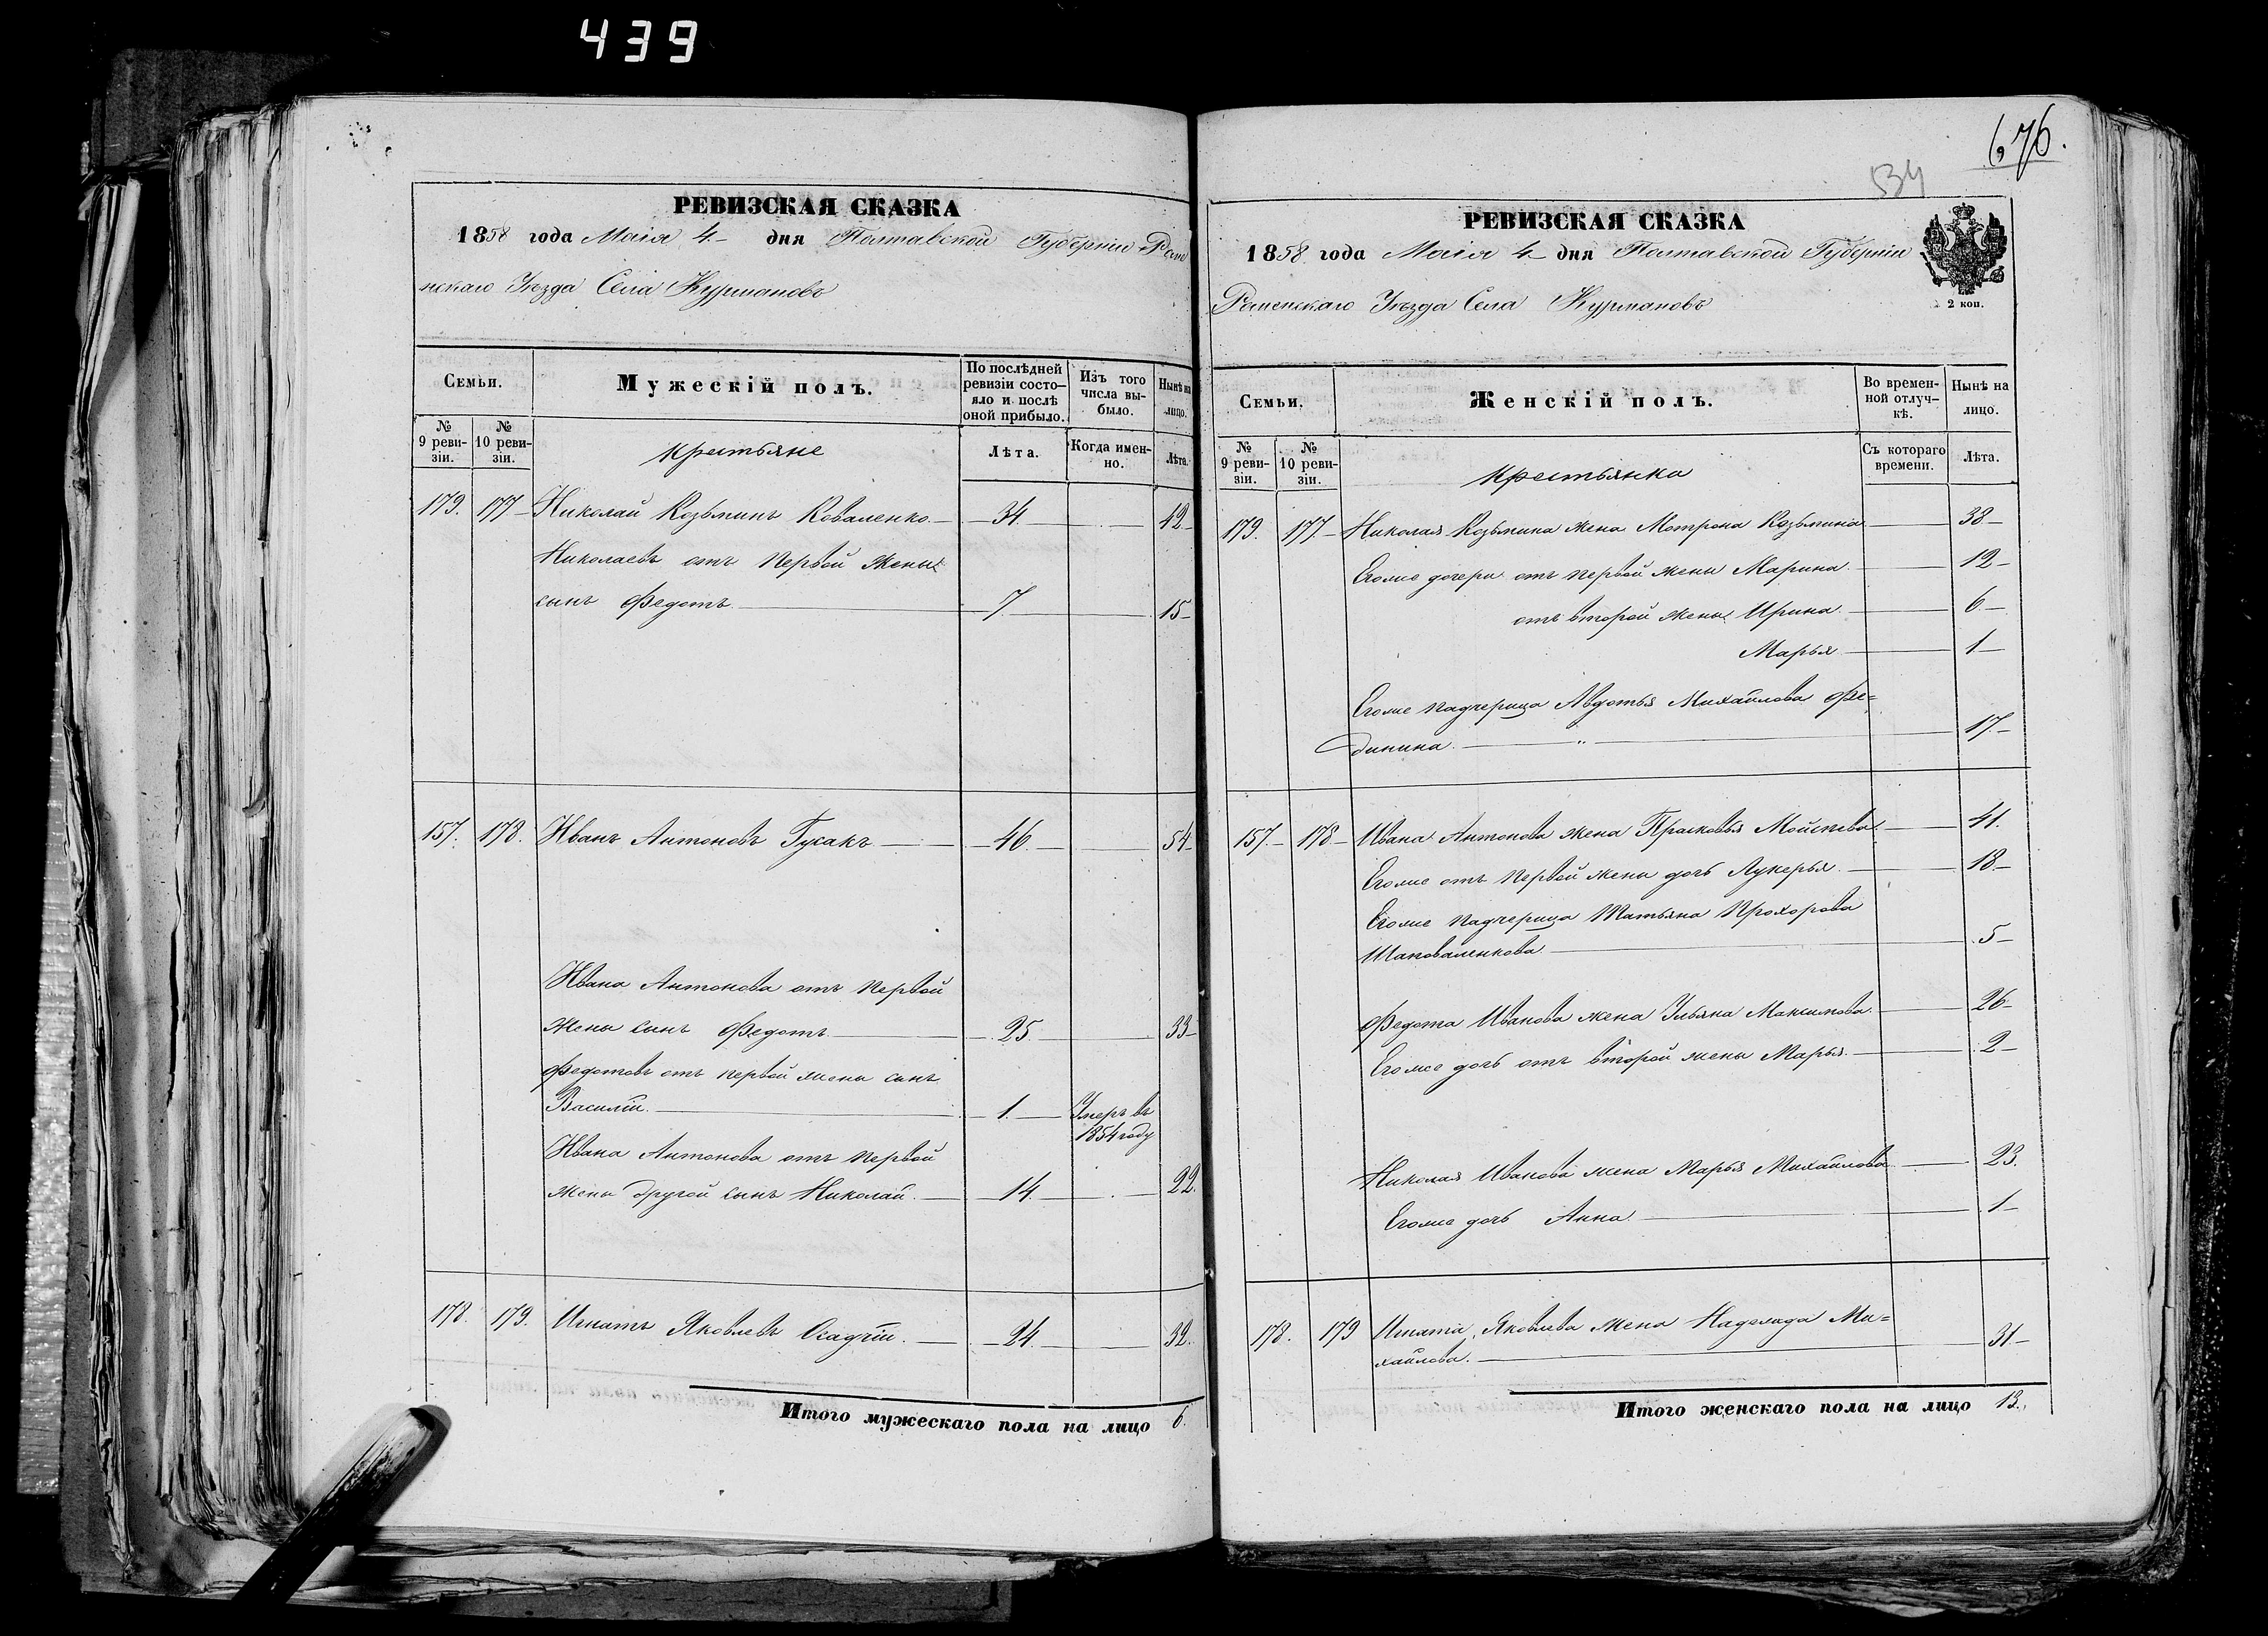 439
РЕВИЗСКАЯ СКАЗКА
1858 года Маія 4 дня Полтавской Губерніи Роме
нскаго Уѣзда Села Курмановъ
Семьи.
Мужескій полъ.
По послѣдней ревизіи состо-
яло и послѣ оной прибыло.
Изъ того числа вы-
было.
Нынѣ на лицо.
№ 9 реви-
зіи.
№ 10 реви-
зіи.
Крестьяне
Лѣта.
Когда имен-
но.
Лѣта.
179. 177. Николай Козьминъ Коваленко 34. 42
Николаевъ отъ первой жены
сынъ Федотъ 7. 15
157. 178. Иванъ Антоновъ Гусакъ 46. 54
Ивана Антонова отъ первой
жены сынъ Федотъ 25. 33
Федотовъ отъ первой жены сынъ
Василій. 1. Умеръ въ
1854 году
Ивана Антонова отъ первой
жены другой сынъ Николай. 14. 22.
178. 179. Игнатъ Яковлевъ Осадчій. 24. 32.
Итого мужескаго пола на лицо 6.
676.
534
РЕВИЗСКАЯ СКАЗКА
1858 года Маія 4 дня Полтавской Губерніи
Роменскаго Уѣзда Села Курмановъ
2 коп.
Семьи.
Женскій полъ.
Во времен-
ной отлуч-
кѣ.
Нынѣ на лицо.
№ 9 реви-
зіи.
№ 10 реви-
зіи.
Крестьянка
Съ котораго времени.
Лѣта.
179. 177. Николая Козьмина жена Мотрона Козьмина 38
Егоже дочери отъ первой жены Марина 12
отъ второй жены Ирина 6
Марья 1
Егоже падчерица Авдотья Михайлова Фе=
динина. " 17
157. 178 Ивана Антонова жена Прасковья Мойсѣева 41.
Егоже отъ первой жены дочь Лукерья. 18
Егоже падчерица Татьяна Прохорова
Шаповаленкова 5
Федота Иванова жена Ульяна Максимова. 26
Егоже дочь отъ второй жены Марья. 2
Николая Иванова жена Марья Михайлова 23.
Егоже дочь Анна 1
178. 179 Игната Яковлева жена Надежда Ми=
хайлова. 31
Итого женскаго пола на лицо 13.